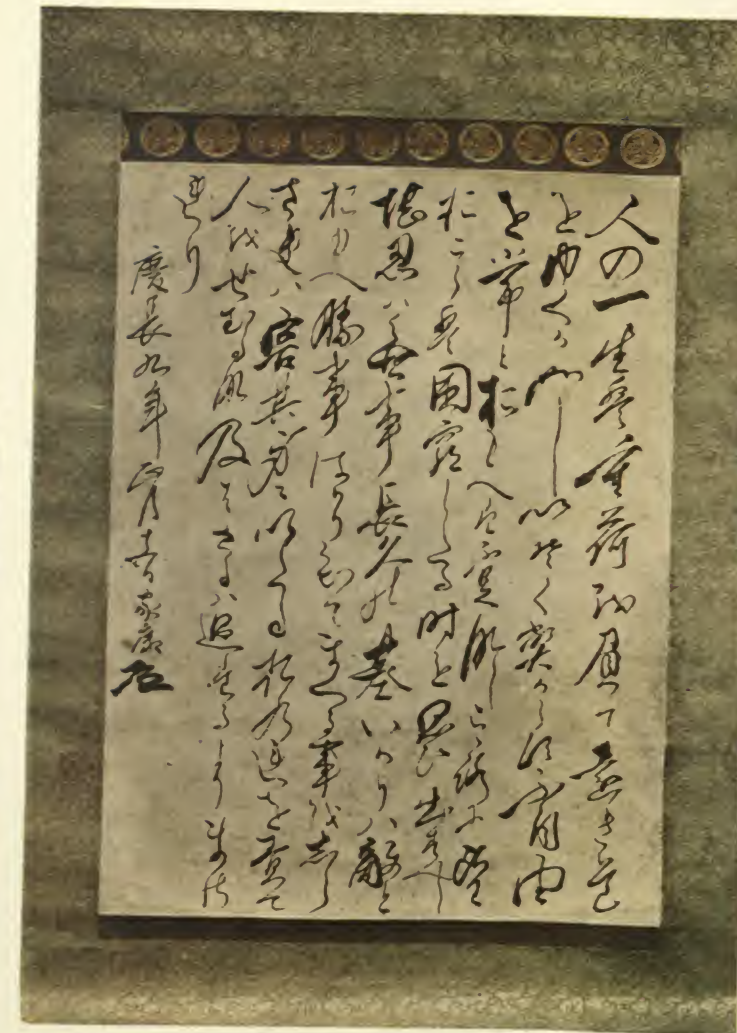 人の一生は重荷を負て遠き道
をゆくか如しいそくへからす不自由
を常とおもへは不足なしこゝろに望
おこらは困窮したる時を思ひ出すへし
堪忍は無事長久の基いかりは敵と
おもへ勝事はかり知てまくる事をしら
されは害其身にいたるおのれを責て
人をせむるな及はさるは過たるよりまさ
れり
慶長九年 正月十五日 家康